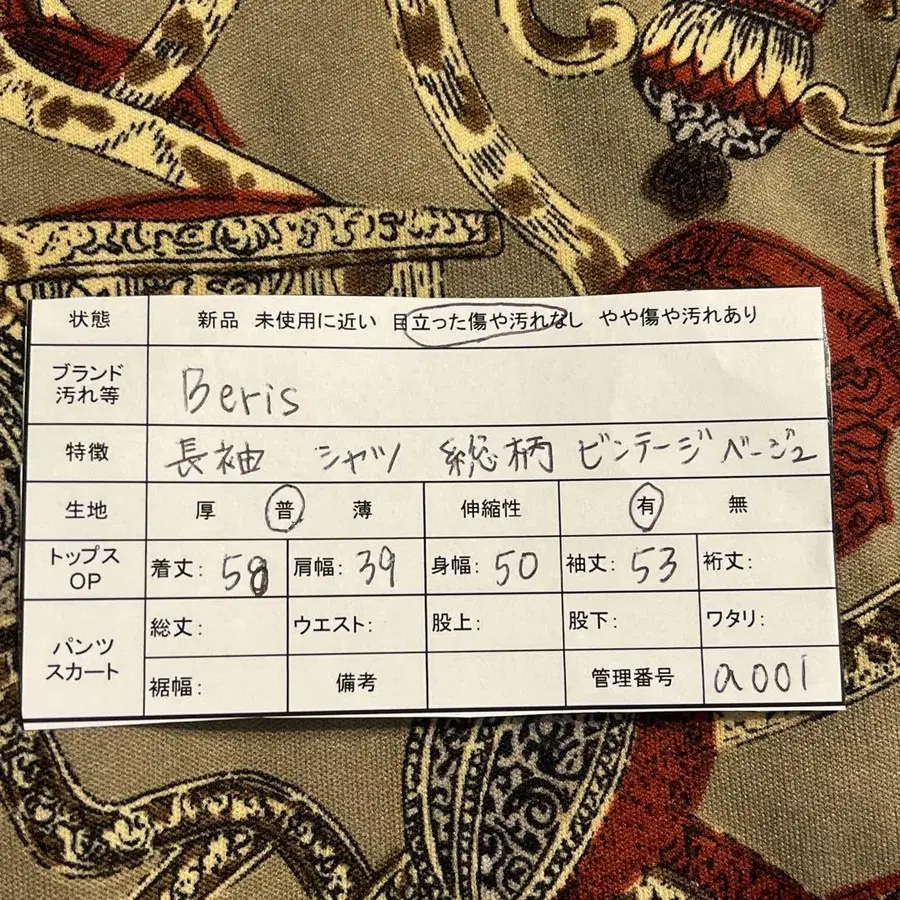 状態 新品 未使用に近い 目立った傷や汚れなし やや傷や汚れあり
ブランド
汚れ等
Beris
特徴 長袖 シャツ 総柄 ビンテージ ベージュ
生地 厚 普 薄 伸縮性 有 無
トップス
OP
着丈: 58 肩幅: 39 身幅: 50 袖丈: 53 裄丈:
パンツ
スカート
総丈: ウエスト: 股上: 股下: ワタリ:
裾幅: 備考 管理番号 a001